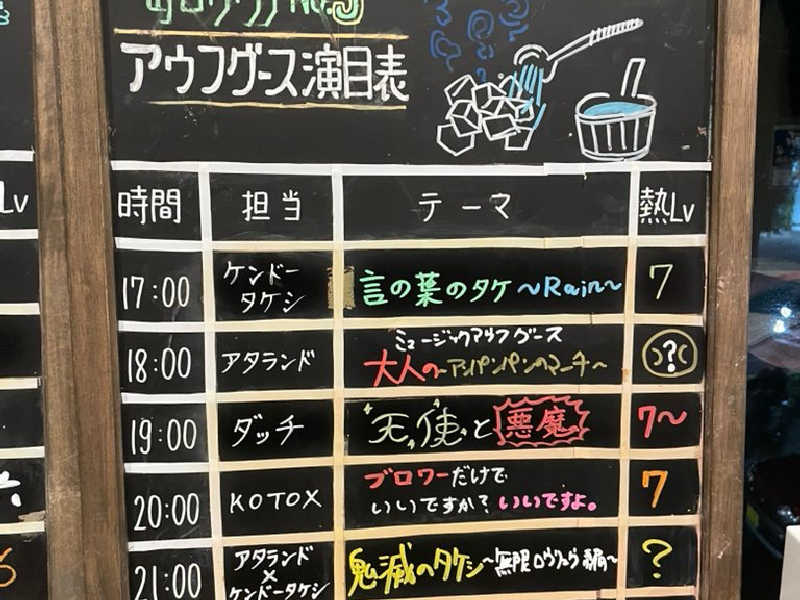 アウフグース演目表
Lv
時間 担当 テーマ 熱Lv
17:00 ケンドータケシ 言の葉のタケ～Rain～ 7
18:00 アタランド ミュージックアウフグース
大人の～アンパンパンのマーチ～ ?
19:00 ダッチ 天使と悪魔 7～
20:00 KOTOX ブロワーだけで
いいですか?いいですよ。 7
21:00 アタランド×ケンドータケシ 鬼滅のタケシ～無限ロウリュウ編～ ?